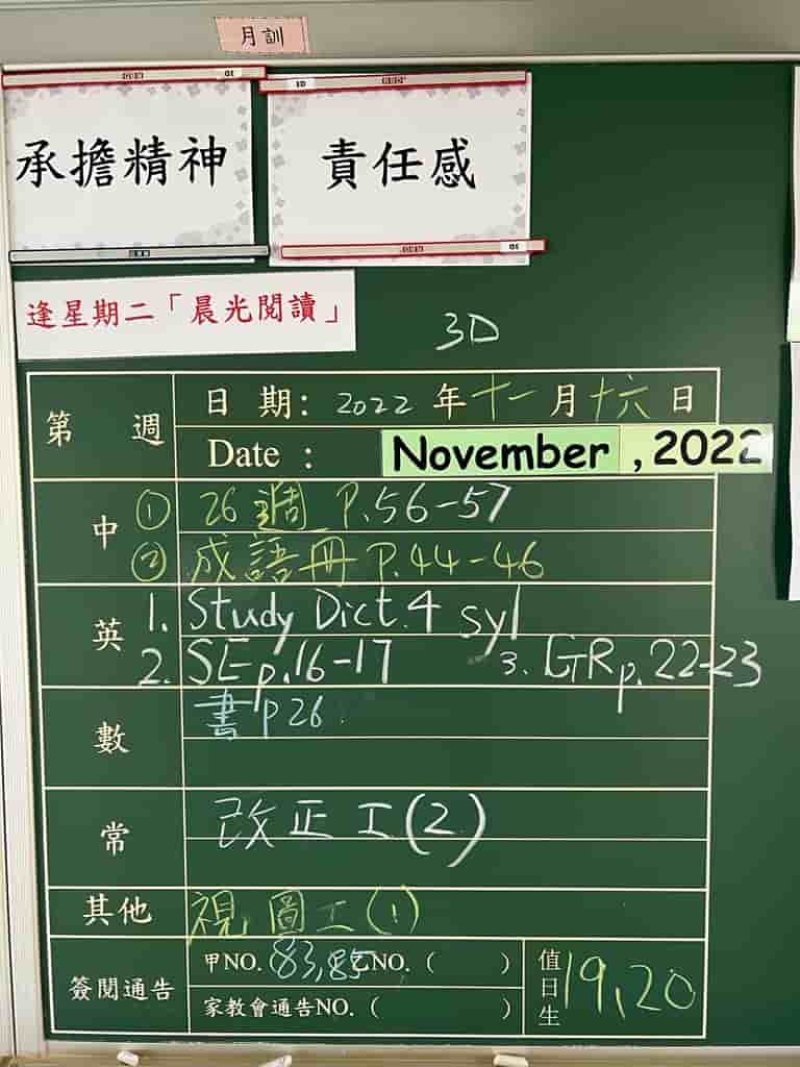 月訓
承擔精神
責任感
逢星期二「晨光閱讀」
3D
第 週
日 期: 2022 年十一月十六日
Date : November , 2022
中 ① 26週 P.56-57
② 成語冊 P.44-46
英 1. Study Dict. 4 syl
2. SE p.16-17 3. GR p.22-23
數 書 p26
常 改正工(2)
其他 視圖工(1)
簽閱通告 甲NO.(83,85 乙NO. ( )
家教會通告NO. (
值日生 19,20